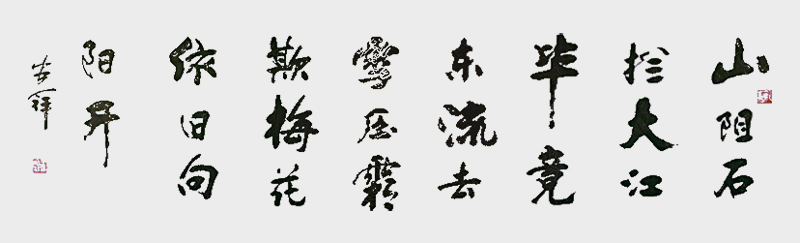 山阻石
拦大江
毕竟
东流去
雪压霜
欺梅花
依旧向
阳开
吉祥